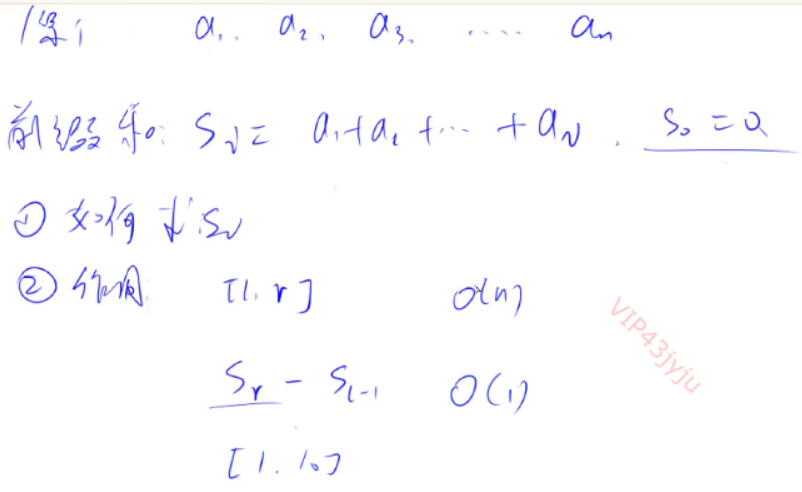 a₁, a₂, a₃, ..... aₙ
前缀和: Sᵢ = a₁+a₂+...+aᵢ. S₀=0
① 如何求Sᵢ
② 作用 [l, r] O(n)
Sᵣ - Sₗ₋₁ O(1)
[1, 10]
VIP43jyju